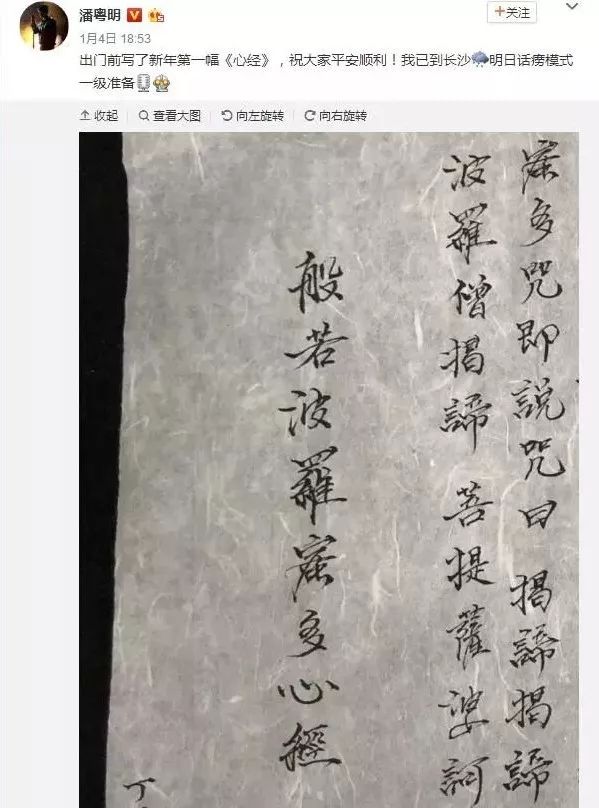 潘粤明
+关注
1月4日 18:53
出门前写了新年第一幅《心经》，祝大家平安顺利！我已到长沙明日话痨模式
一级准备
收起 查看大图 向左旋转 向右旋转
蜜多咒即說咒曰 揭諦揭諦
波羅僧揭諦 菩提薩婆訶
般若波羅蜜多心經
丁